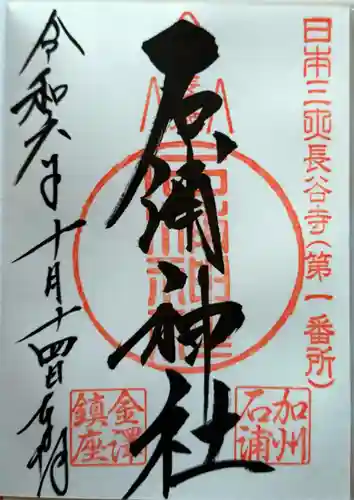 日本三大長谷寺(第一番所)
加州
石浦
石浦神社
金澤
鎮座
令和六年十月十四日